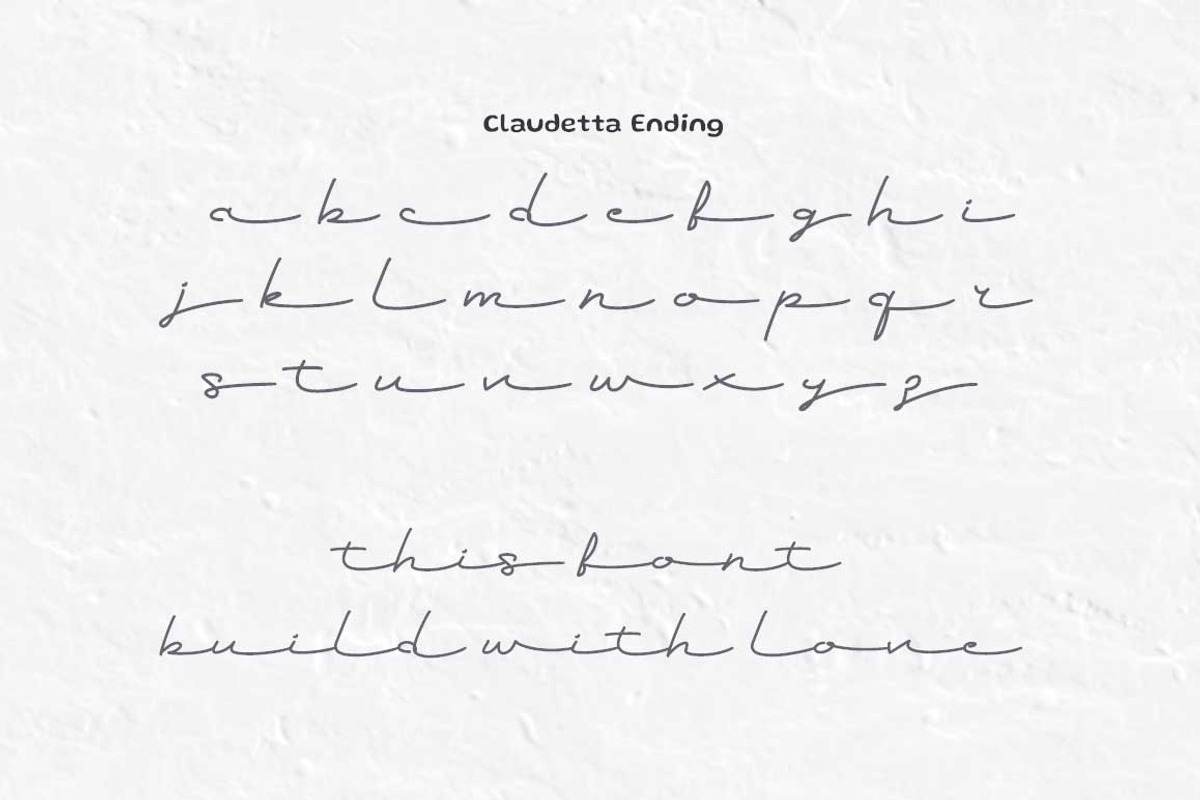 Claudetta Ending
a b c d e f g h i
j k l m n o p q r
s t u v w x y z
this font
build with love